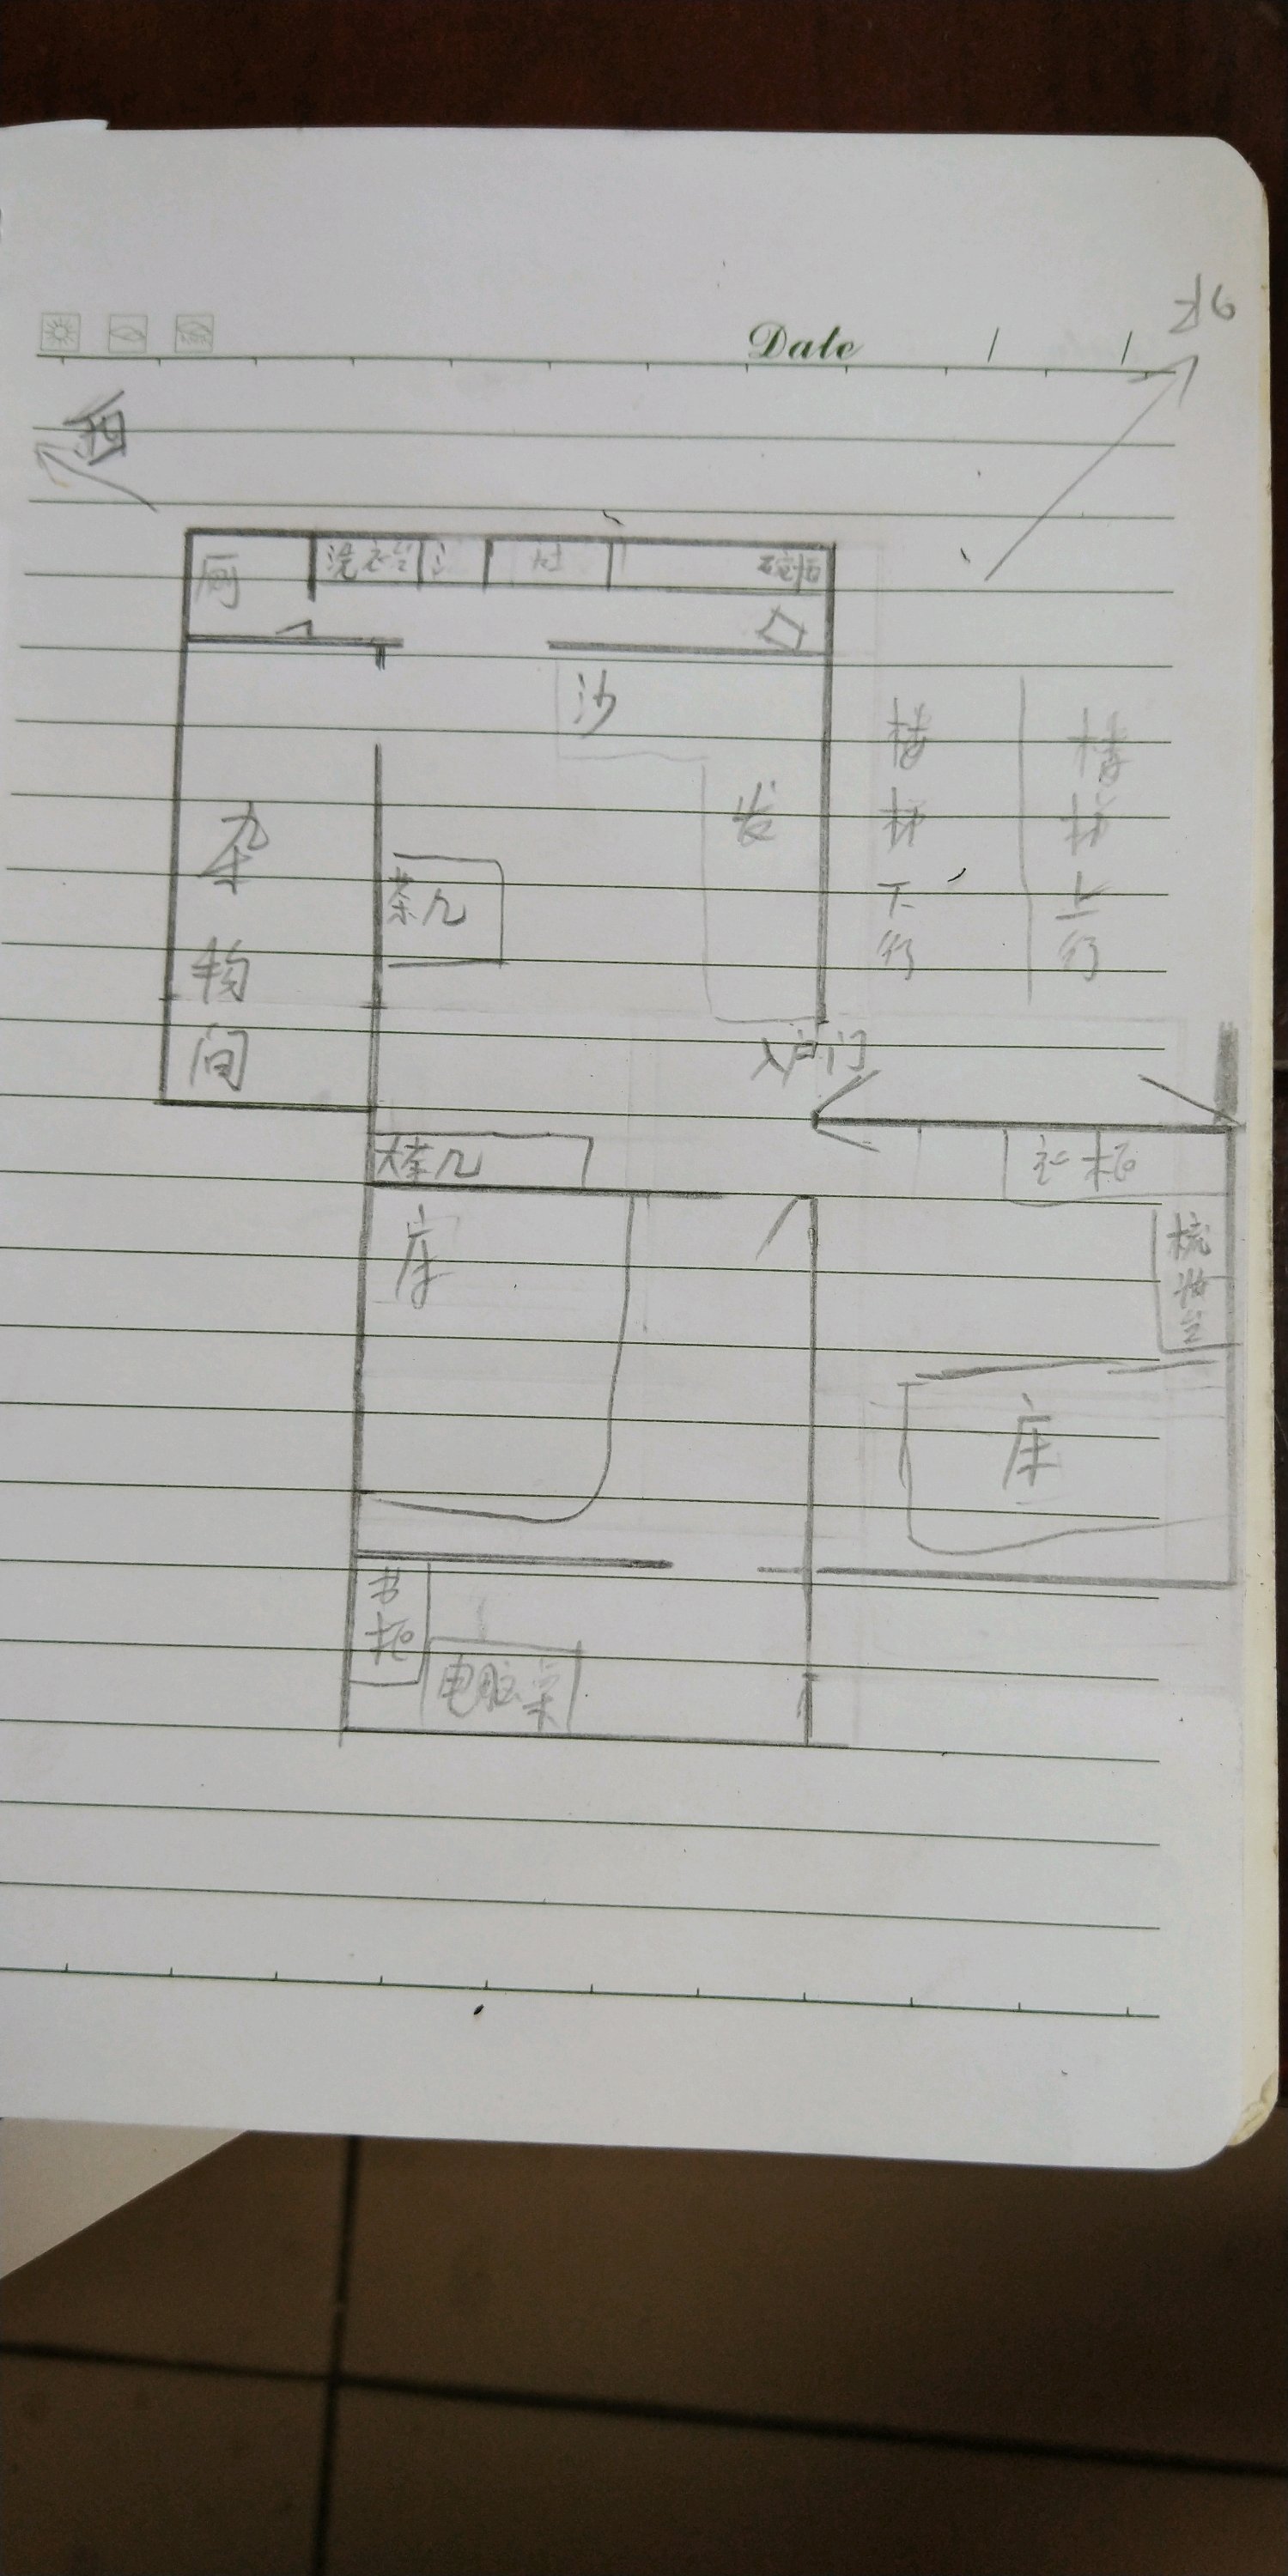 Date
西
北
厕
洗衣台
灶
碗柜
沙
发
楼梯下行
楼梯上行
杂物间
茶几
入户门
大茶几
衣柜
梳妆台
床
床
书柜
电脑桌